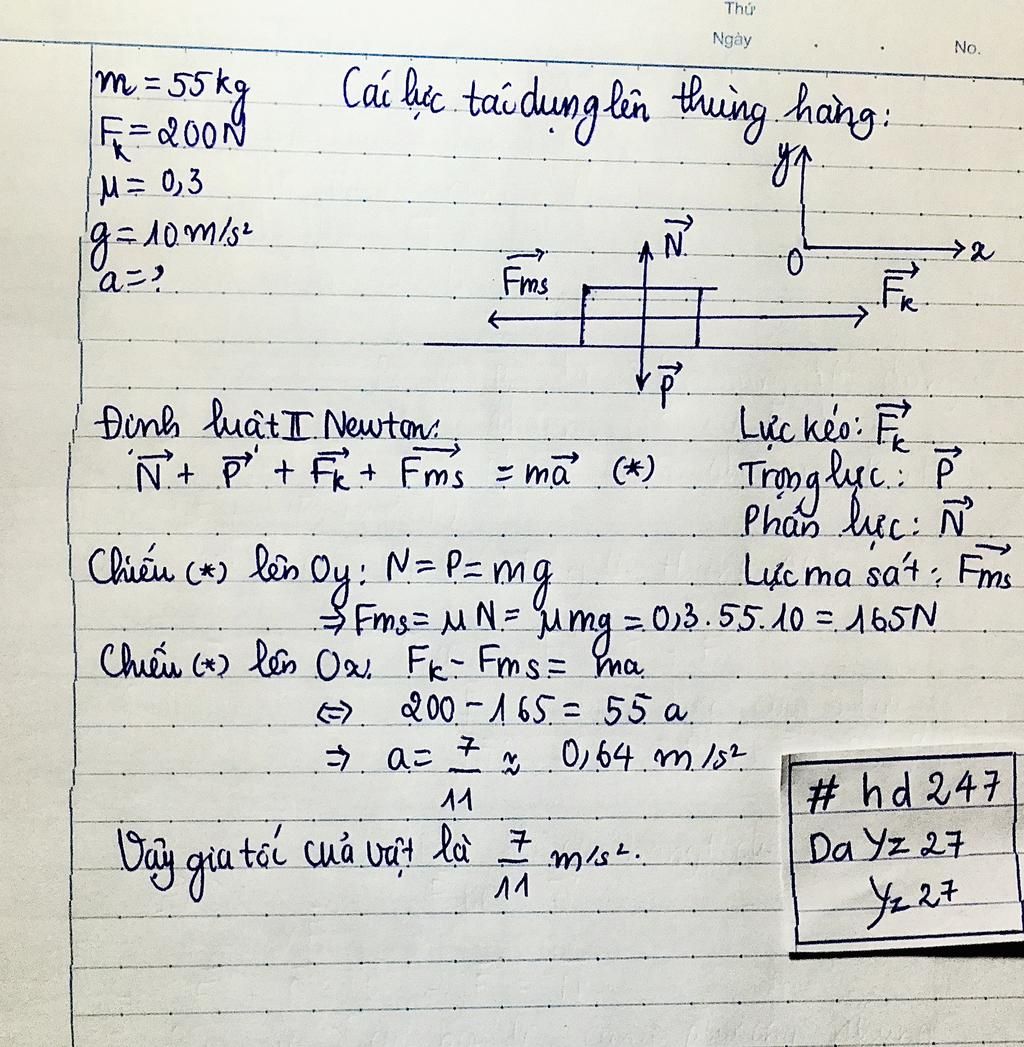 Thứ
Ngày . . No.
m = 55 kg
Fk = 200N
μ = 0,3
g = 10 m/s²
a = ?
Các lực tác dụng lên thùng hàng:
y
O x
N⃗
Fms⃗ Fk⃗
P⃗
Định luật II Newton:
N⃗ + P⃗ + Fk⃗ + Fms⃗ = ma⃗ (*)
Lực kéo: Fk⃗
Trọng lực: P⃗
Phản lực: N⃗
Lực ma sát: Fms⃗
Chiếu (*) lên Oy: N = P = mg
⇒ Fms = μN = μmg = 0,3.55.10 = 165N
Chiếu (*) lên Ox: Fk - Fms = ma
⇔ 200 - 165 = 55 a
⇒ a = 7/11 ≈ 0,64 m/s²
Vậy gia tốc của vật là 7/11 m/s².
# hd 247
Da Yz 27
Yz 27